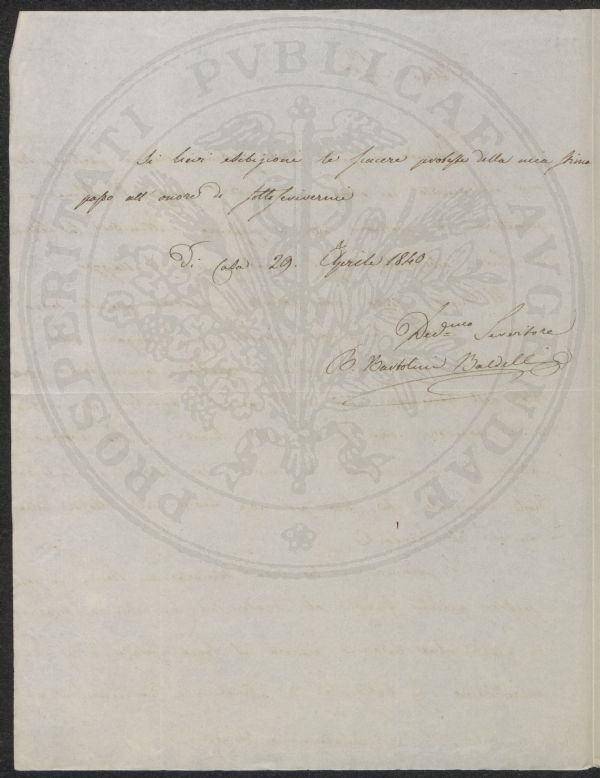 PROSPERITATI PVBLICAE AVGENDAE
le sincere proteste della mia stima
passo all' onore di sottoscrivermi
Di Casa 29. Aprile 1840
Dev.mo Servitore
B. Bartolini Baldelli